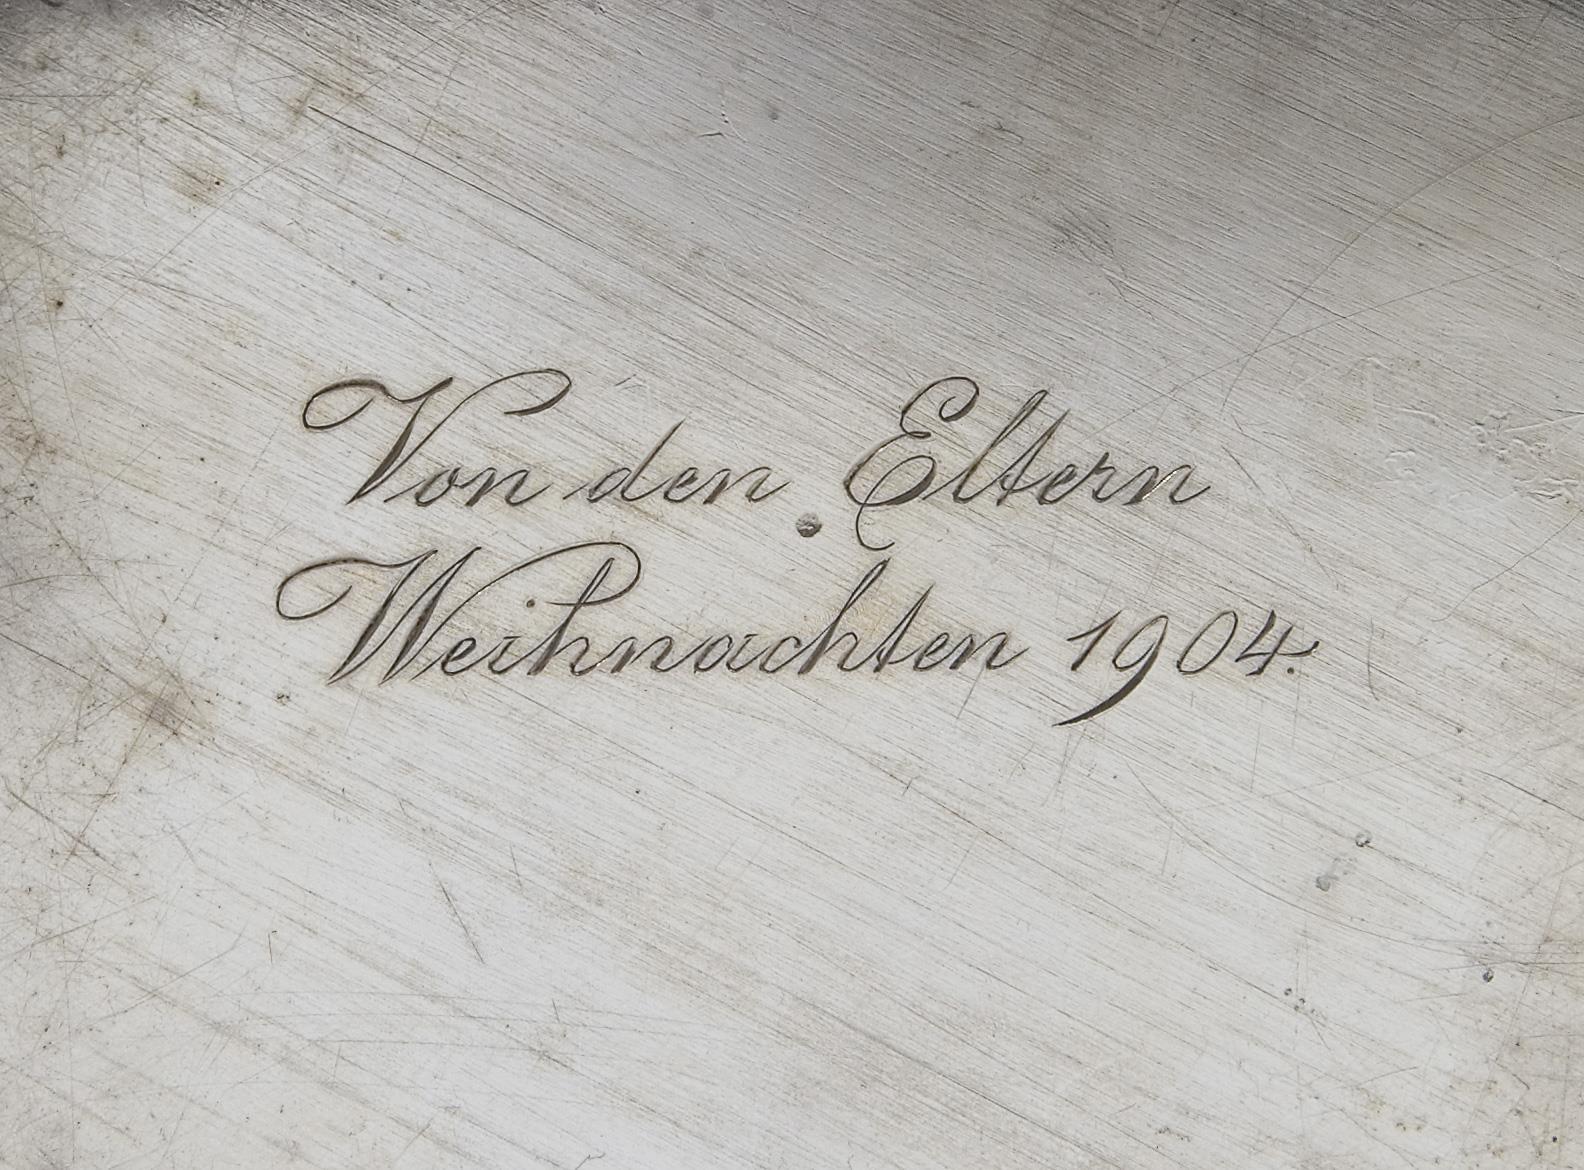 Von den Eltern
Weihnachten 1904.